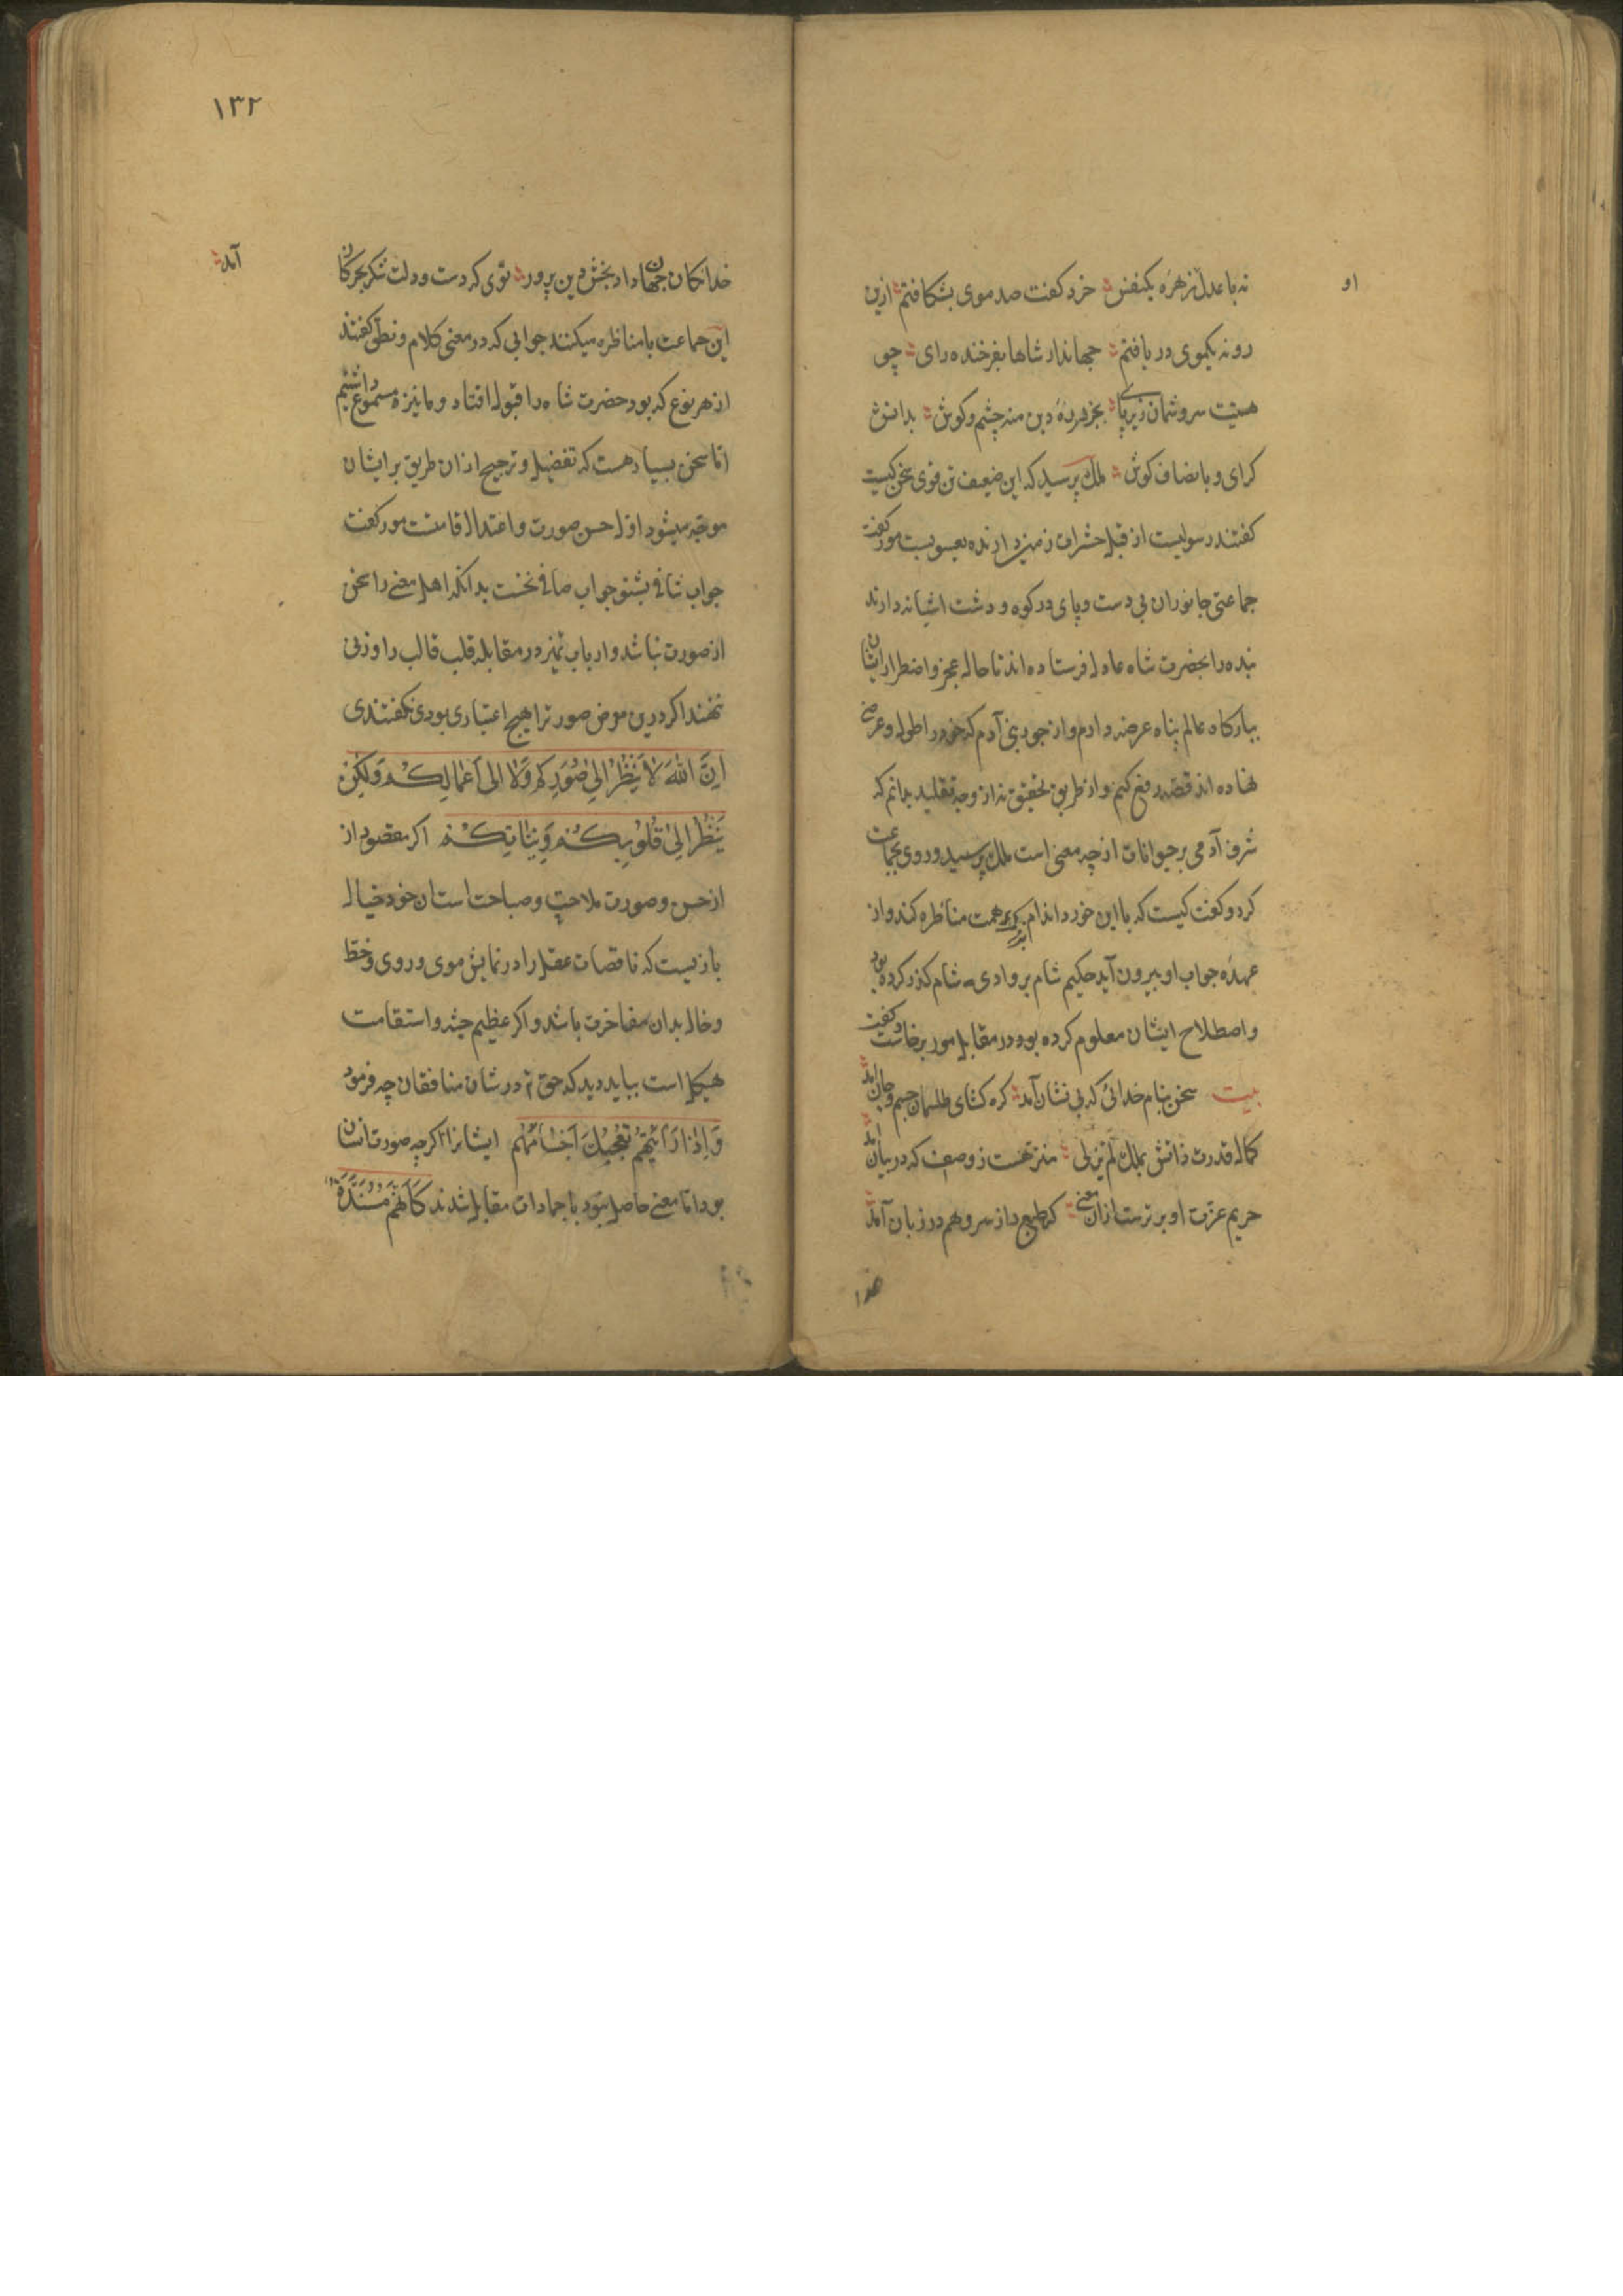 نه با عدل زهره یکنفس خرد کفت صد موی بشکافتم ازین
او
رو نه یکموی دریافتم جهاندار شاها بفرخنده رای چو
هستت سروشمان زیر پای بجز بر ره دین منه چشم و کوش بدانش
کرای و بانصاف کوش ملک پرسید که این ضعیف تن قوی سخن کیست
کفتند رسولیست از قبل حشرات زمین مور کفت
جماعتی جانوران بی دست و پای در کوه و دشت اشیانه دارند
بنده را بحضرت شاه عادل فرستاده اند تا حال عجز و اضطرار ایشان
ببارکاه عالم پناه عرضه دارم و از جور بنی آدم که خود را طول و عرضی
نهاده اند قصه رفع کنم و از طریق تحقیق نه از وجه تقلید بدانم که
شرف آدمی بر حیوانات از چه معنی است ملک پرسید و روی بجماعت
کرد و کفت کیست که با این خورد اندام همت مناظره کند و از
عهده جواب او بیرون آید حکیم شام بر وادی شام کذر کرده بود
و اصطلاح ایشان معلوم کرده بود در مقابل مور برخاست و کفت
بیت سخن بنام خدائی که بی نشان آمد کره کشای طلسمات جسم و جان آمد
کمال قدرت ذاتش بملک لم یزلی منزهست ز وصفی که در بیان آمد
حریم عزت او برترست ازان معنی که طبع دان سر وهم در زبان آمد
خدا
١٣٢
خدایکان جهان داد بخش دین پرور توی که دست و دلت شکر بحر و کان
آمد
این جماعت با ما مناظره میکنند جوابی که در معنی کلام و نطق کفتند
از هر نوع که بود حضرت شاه را قبول افتاد و ما نیز مسموع داشتیم
اما سخن بسیار هست که تفضیل و ترجیح از ان طریق بر ایشان
موجه میشود اول حسن صورت و اعتدال قامت مور کفت
جواب شافی بشنو جواب صافی نخست بدانکه اهل معنی را سخن
از صورت نباشد و ارباب تمیز در مقابله قلب قالب را وزنی
ننهند اکر درین موضع صورت را هیچ اعتباری بودی نکفتندی
اِنَّ اللهَ لَا يَنْظُرُ اِلٰى صُوَرِكُم وَلَا اِلٰى اَعْمَالِكُمْ وَلٰكِنْ
يَنْظُرُ اِلٰى قُلُوبِكُمْ وَنِيَّاتِكُمْ اکر مقصود از
از حسن و صورت ملاحت و صباحت است ان خود خیال
بازیست که ناقصات عقل را در نمایش موی و روی و خط
و خال بدان مفاخرت باشد و اکر عظیم جثه و استقامت
هیکل است بباید دید که حق تع در شان منافقان چه فرمود
وَاِذَا رَاَيْتَهُمْ تُعْجِبُكَ اَجْسَامُهُمْ ایشانرا اکرچه صورت انسان
بود اما معنی حاصل نبود با جمادات مقابل شدند كَاَنَّهُمْ مُسَنَّدَةٌ